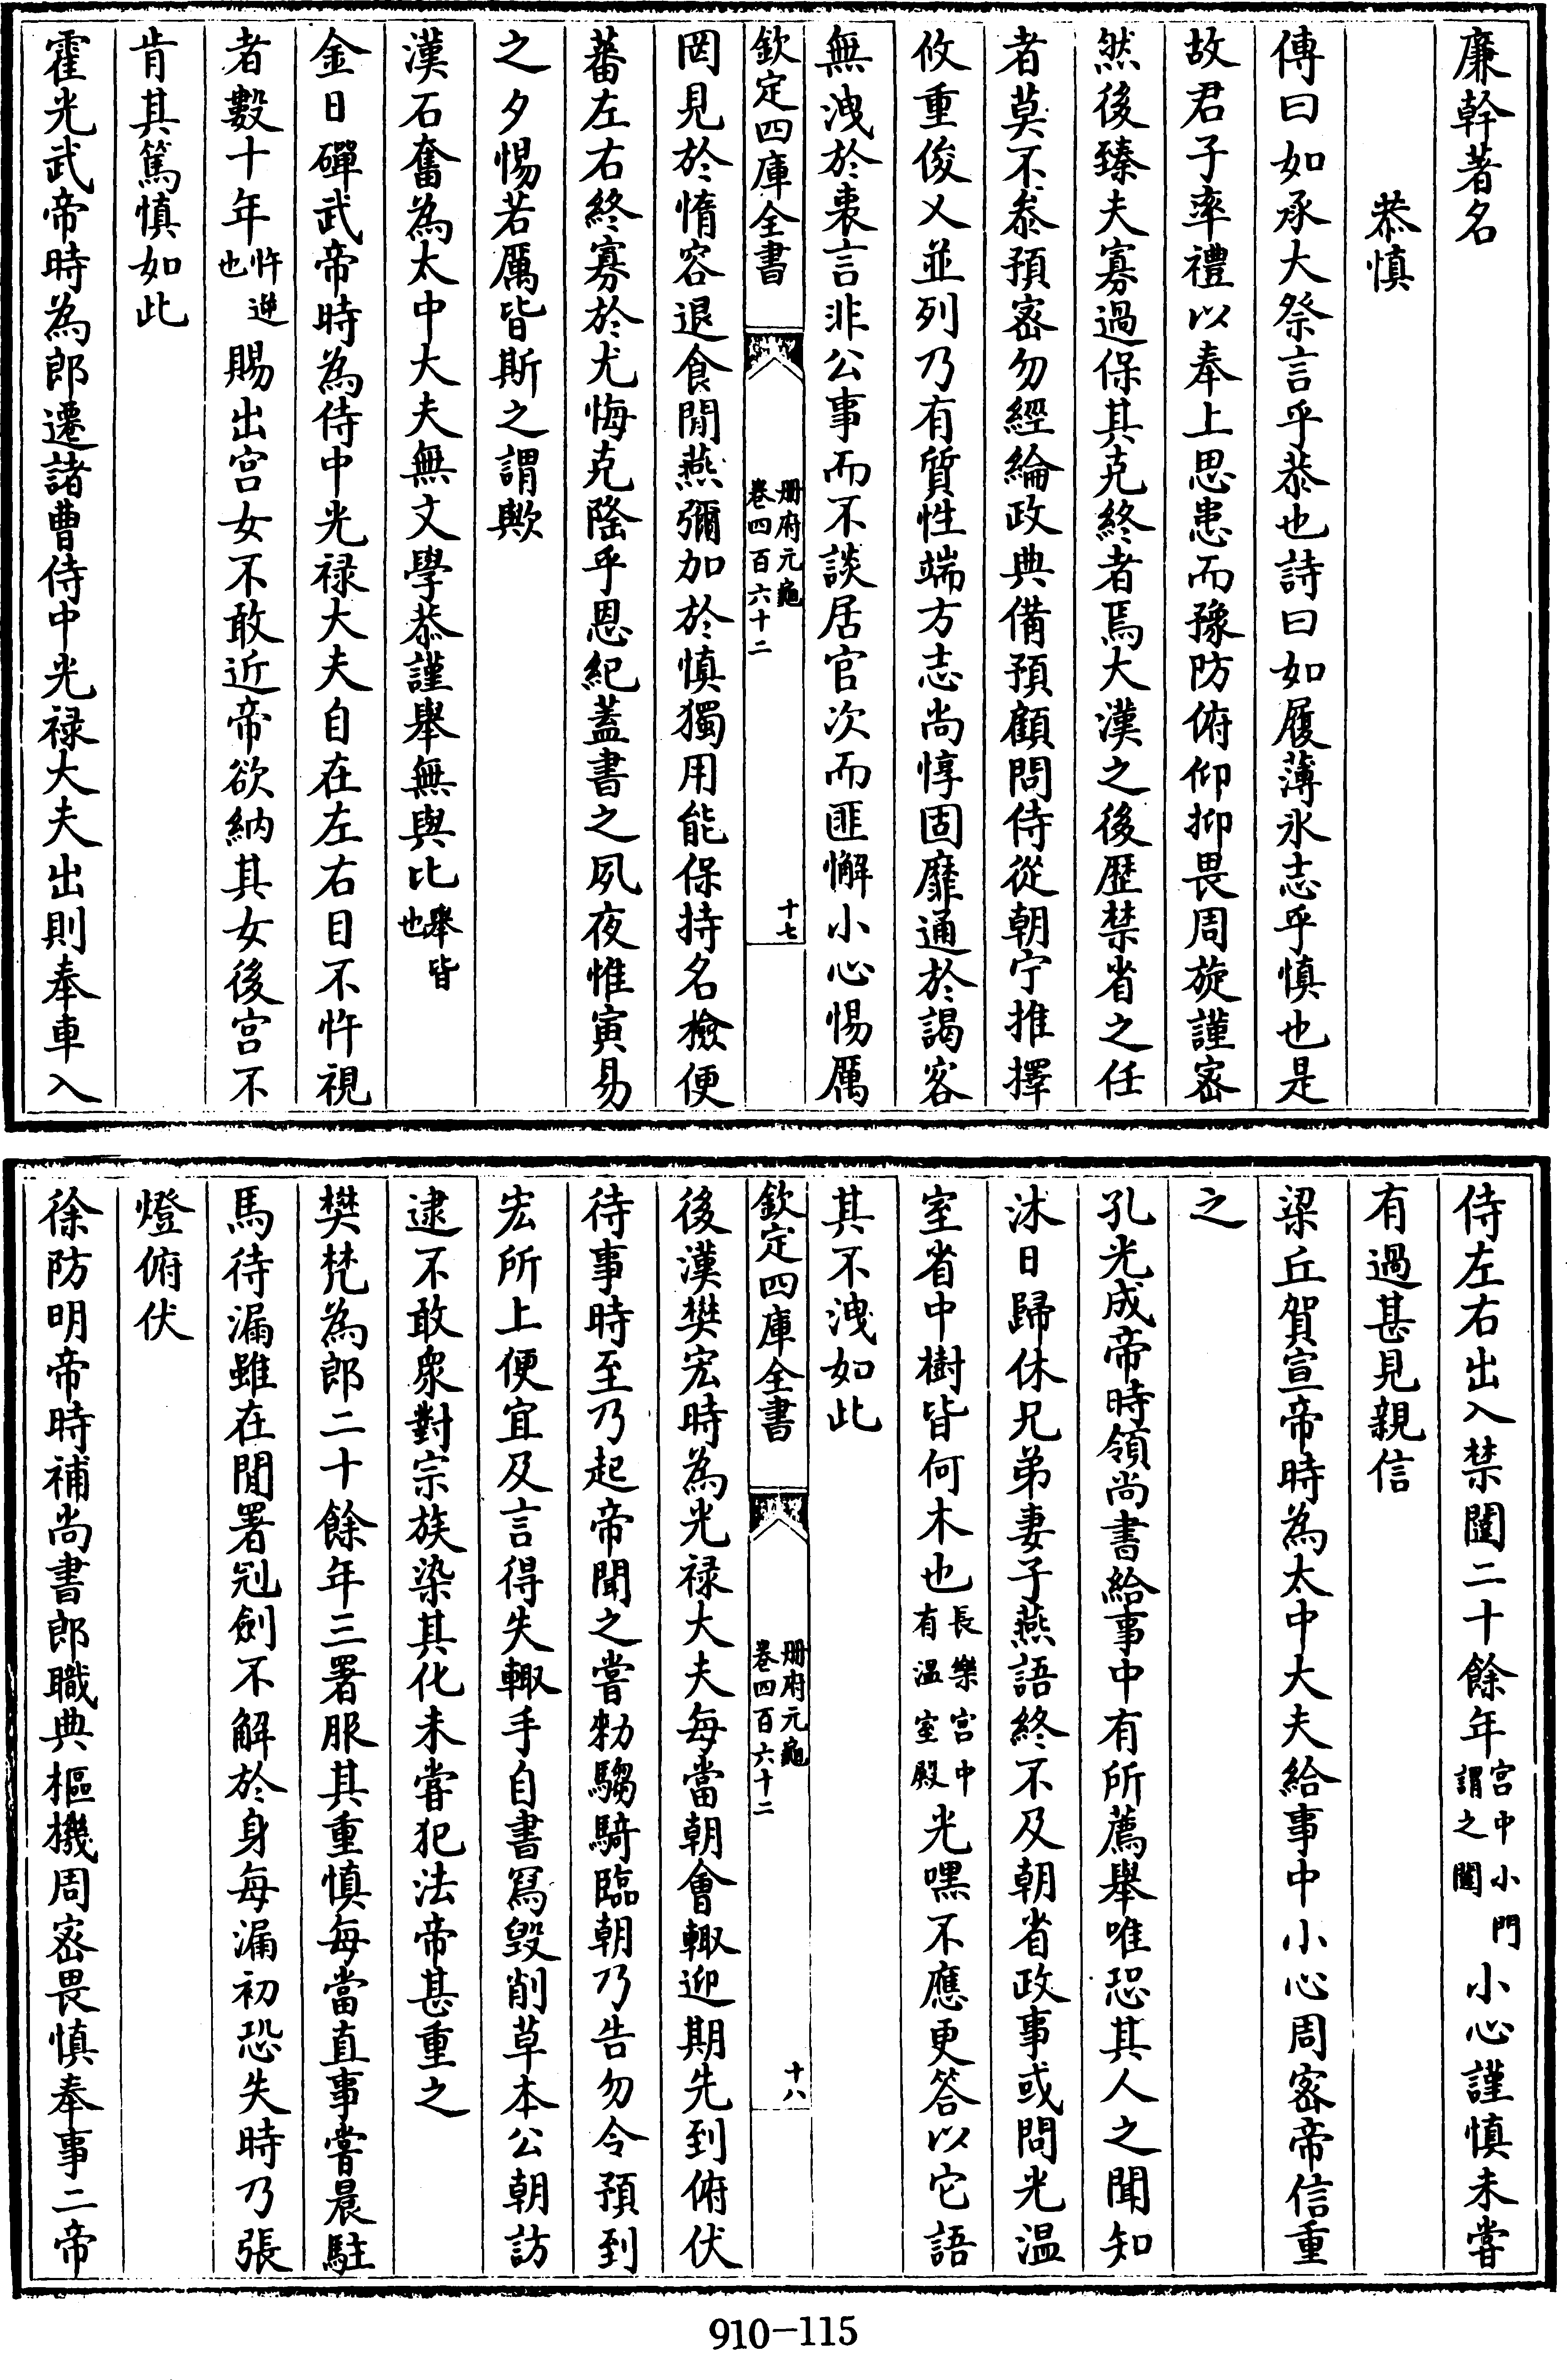 廉幹著名
恭慎
傳曰如承大祭言乎恭也詩曰如履薄氷志乎慎也是
故君子率禮以奉上思患而豫防俯仰抑畏周旋謹密
然後臻夫寡過保其克終者焉大漢之後歷禁省之任
者莫不叅預密勿經綸政典備預顧問侍從朝宁推擇
攸重俊乂並列乃有質性端方志尚惇固靡通於謁客
無洩於裏言非公事而不談居官次而匪懈小心惕厲
欽定四庫全書 冊府元龜卷四百六十二 十七
罔見於惰容退食閒燕彌加於慎獨用能保持名檢便
蕃左右終寡於尤悔克隆乎恩紀蓋書之夙夜惟寅易
之夕惕若厲皆斯之謂歟
漢石奮為太中大夫無文學恭謹舉無與比舉皆也
金日磾武帝時為侍中光禄大夫自在左右目不忤視
者數十年忤逆也賜出宫女不敢近帝欲納其女後宫不
肯其篤慎如此
霍光武帝時為郎遷諸曹侍中光禄大夫出則奉車入
侍左右出入禁闥二十餘年宫中小門謂之闥小心謹慎未嘗
有過甚見親信
梁丘賀宣帝時為太中大夫給事中小心周密帝信重
之
孔光成帝時領尚書給事中有所薦舉唯恐其人之聞知
沐日歸休兄弟妻子燕語終不及朝省政事或問光温
室省中樹皆何木也長樂宫中有温室殿光嘿不應更答以它語
其不洩如此
欽定四庫全書 冊府元龜卷四百六十二 十八
後漢樊宏時為光禄大夫每當朝會輙迎期先到俯伏
待事時至乃起帝聞之嘗勑騶騎臨朝乃告勿令預到
宏所上便宜及言得失輙手自書冩毀削草本公朝訪
逮不敢衆對宗族染其化未嘗犯法帝甚重之
樊梵為郎二十餘年三署服其重慎每當直事嘗晨駐
馬待漏雖在閒署冠劍不解於身每漏初恐失時乃張
燈俯伏
徐防明帝時補尚書郎職典樞機周密畏慎奉事二帝
910-115